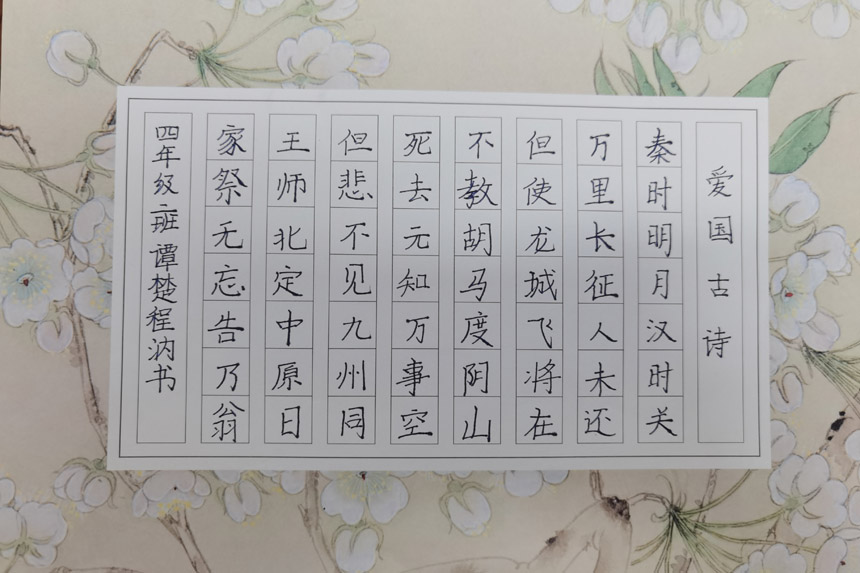 爱国古诗
秦时明月汉时关
万里长征人未还
但使龙城飞将在
不教胡马度阴山
死去元知万事空
但悲不见九州同
王师北定中原日
家祭无忘告乃翁
四年级二班谭楚程汭书